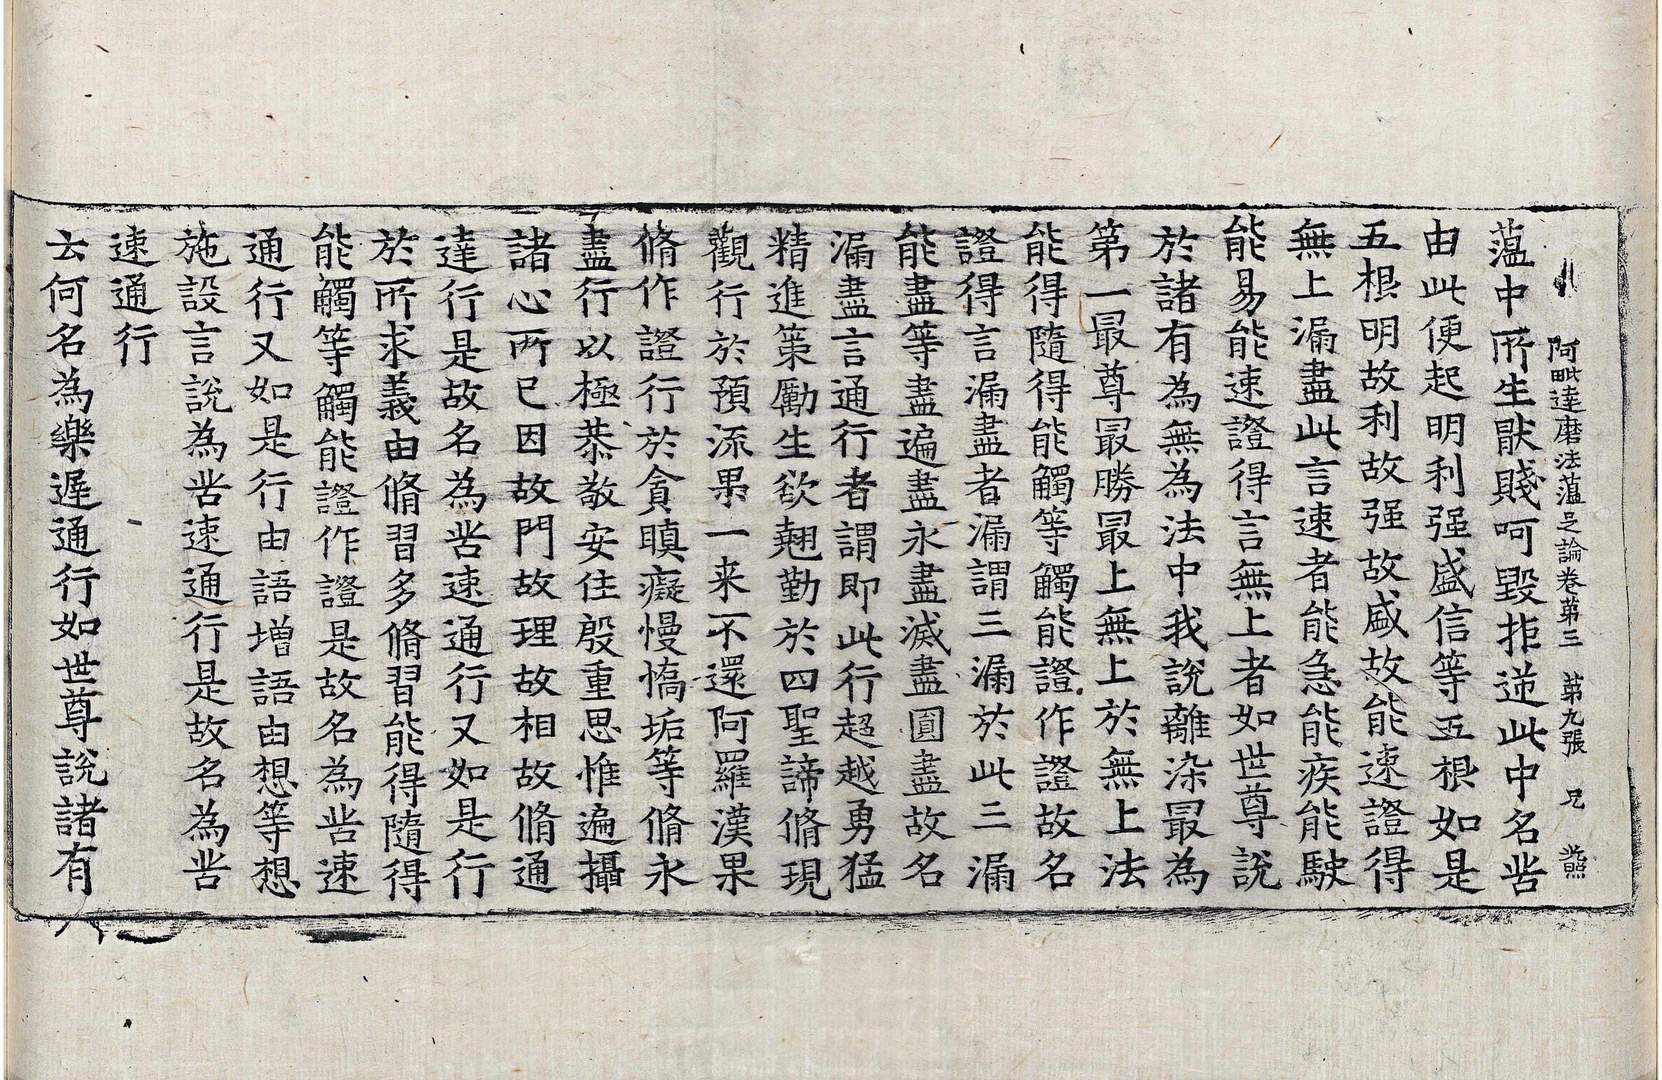 阿毗達磨法蘊足論卷第三 第九張 兄 㷼
蘊中所生厭賤呵毀拒逆此中名苦
由此便起明利强盛信等五根如是
五根明故利故强故盛故能速證得
無上漏盡此言速者能急能疾能駛
能易能速證得言無上者如世尊說
於諸有為無為法中我說離染最為
第一最尊最勝最上無上於無上法
能得隨得能觸等觸能證作證故名
證得言漏盡者漏謂三漏於此三漏
能盡等盡遍盡永盡滅盡圓盡故名
漏盡言通行者謂即此行超越勇猛
精進策勵生欲翹勤於四聖諦脩現
觀行於預流果一来不還阿羅漢果
脩作證行於貪瞋癡慢憍垢等脩永
盡行以極恭敬安住殷重思惟遍攝
諸心所已因故門故理故相故脩通
達行是故名為苦速通行又如是行
於所求義由脩習多脩習能得隨得
能觸等觸能證作證是故名為苦速
通行又如是行由語增語由想等想
施設言說為苦速通行是故名為苦
速通行
云何名為樂遲通行如世尊說諸有